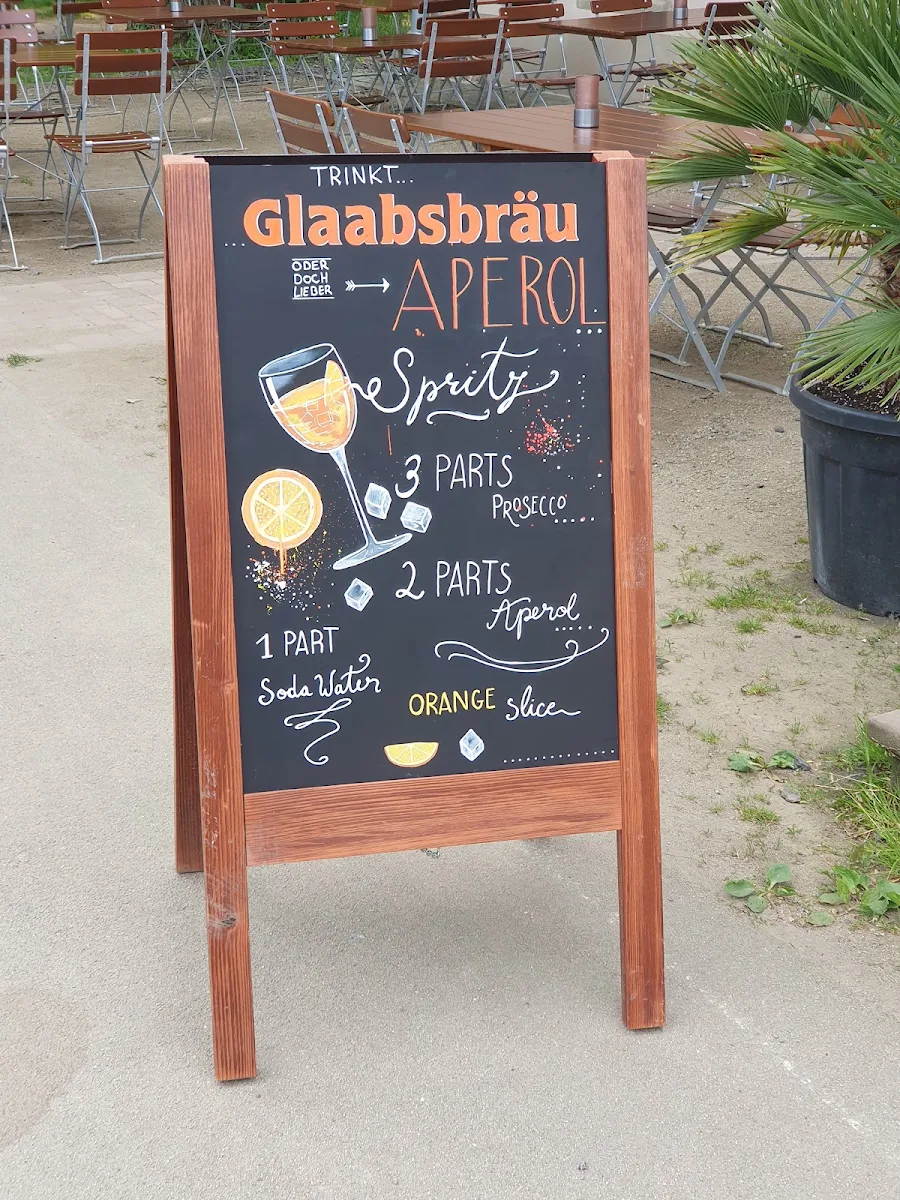 TRINKT...
...Glaabsbräu
ODER
DOCH
LIEBER
APEROL
Spritz
3 PARTS
PROSECCO
2 PARTS
Aperol
1 PART
Soda Water
ORANGE slice